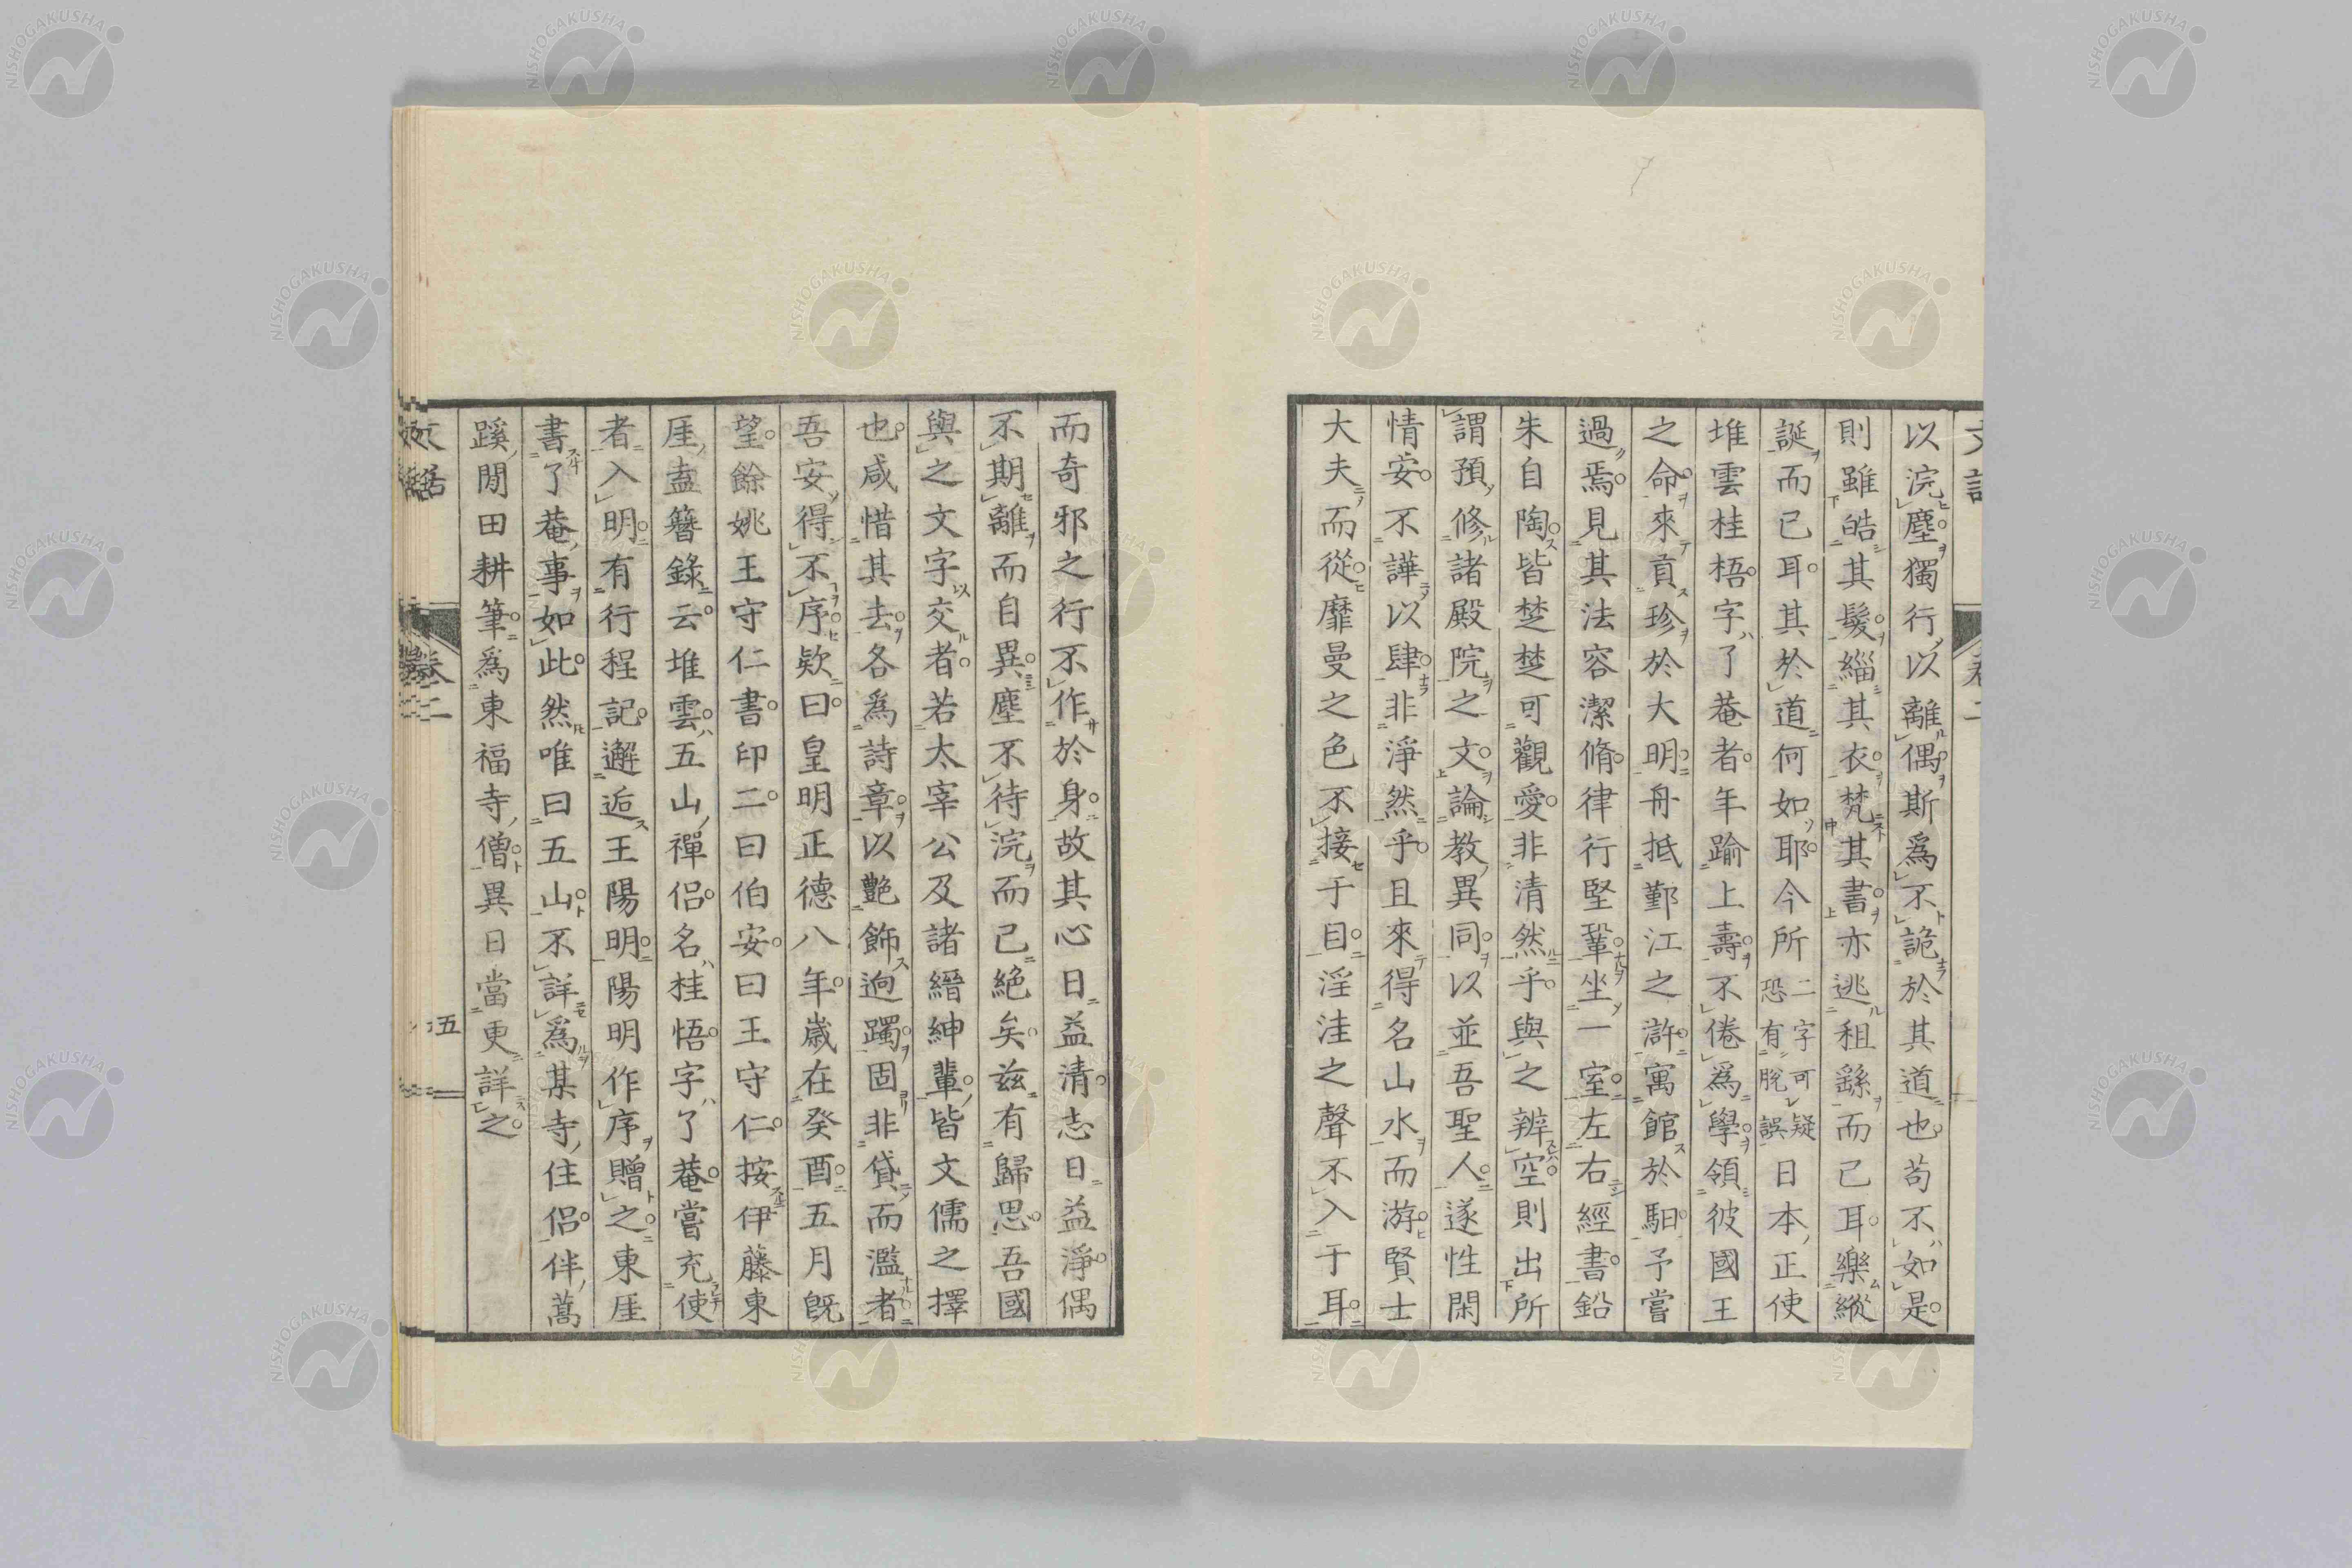 以浣塵獨行以離偶斯爲不詭於其道也苟不如是
則雖皓其髮緇其衣梵其書亦逃租繇而已耳樂縱
誕而已耳其於道何如耶今所恐有脫誤二字可疑日本正使
堆雲桂梧字了菴者年踰上壽不倦爲學領彼國王
之命來貢珍於大明舟抵鄞江之滸寓館於馹予嘗
過焉見其法容潔脩律行堅鞏坐一室左右經書鉛
朱自陶皆楚楚可觀愛非清然乎與之辨空則出所
謂預修諸殿院之文論教異同以並吾聖人遂性閑
情安不譁以肆非淨然乎且來得名山水而游賢士
大夫而從靡曼之色不接于目淫洼之聲不入于耳
而奇邪之行不作於身故其心日益清志日益淨偶
不期離而自異塵不待浣而已絕矣茲有歸思吾國
與之文字交者若太宰公及諸縉紳輩皆文儒之擇
也咸惜其去各爲詩章以艷飾逈躅固非貸而濫者
吾安得不序欵曰皇明正德八年歲在癸酉五月旣
望餘姚王守仁書印二曰伯安曰王守仁按伊藤東
厓盍簪錄云堆雲五山禪侶名桂悟字了菴嘗充使
者入明有行程記邂逅王陽明陽明作序贈之東厓
書了菴事如此然唯曰五山不詳爲某寺住侶伴蒿
蹊閒田耕筆爲東福寺僧異日當更詳之
文話
卷二
五
NISHOGAKUSHA